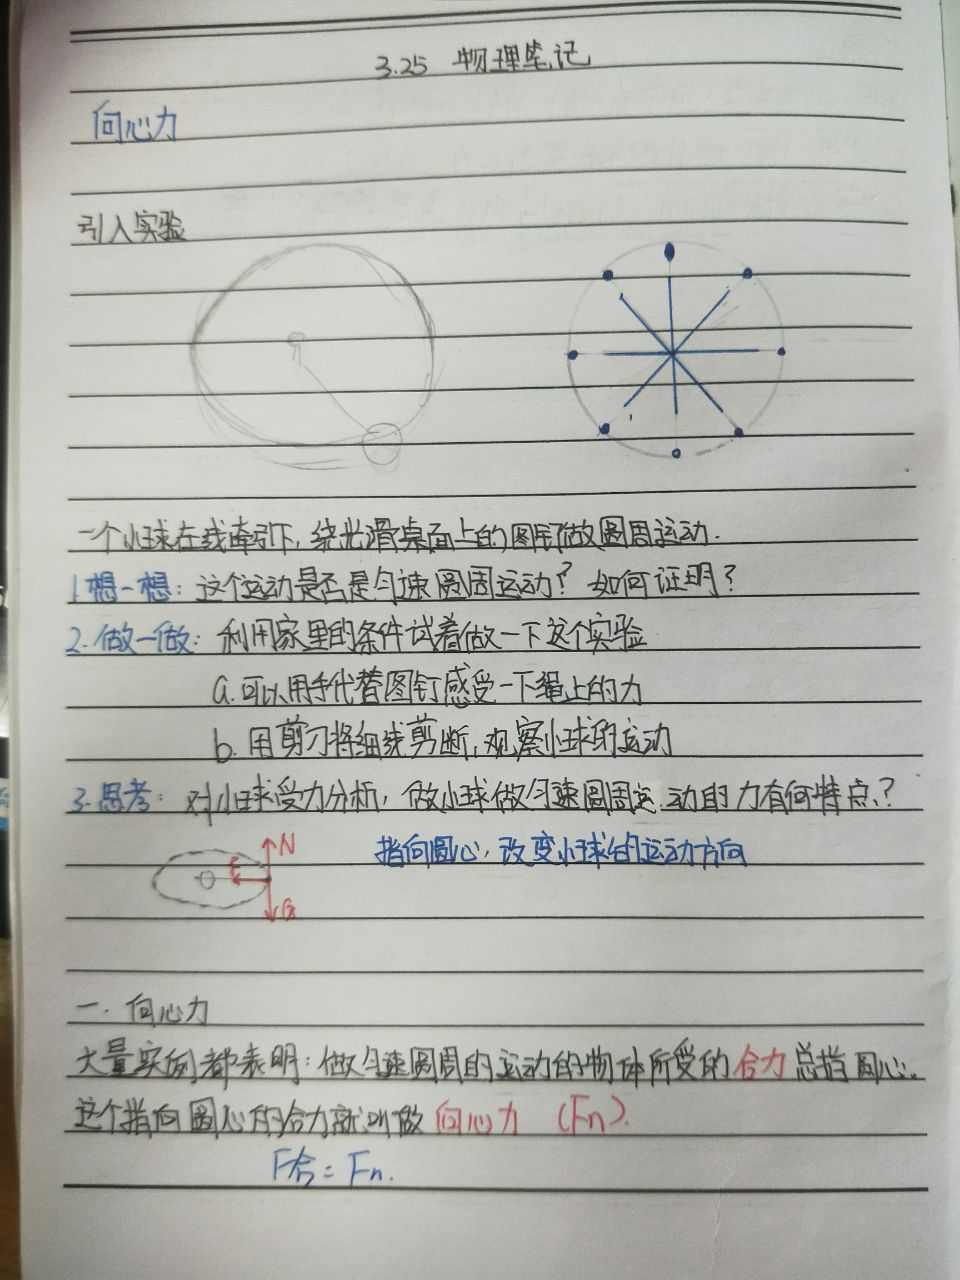 3.25 物理笔记
向心力
引入实验
一个小球在线牵引下,绕光滑桌面上的图钉做圆周运动.
1.想一想:这个运动是否是匀速圆周运动?如何证明?
2.做一做:利用家里的条件试着做一下这个实验
a.可以用手代替图钉感受一下绳上的力
b.用剪刀将细线剪断,观察小球的运动
3.思考:对小球受力分析,做小球做匀速圆周运动的力有何特点?
指向圆心,改变小球的运动方向
N
F
G
一.向心力
大量实例都表明:做匀速圆周的运动的物体所受的合力总指圆心.
这个指向圆心的合力就叫做向心力 (Fn).
F合=Fn.